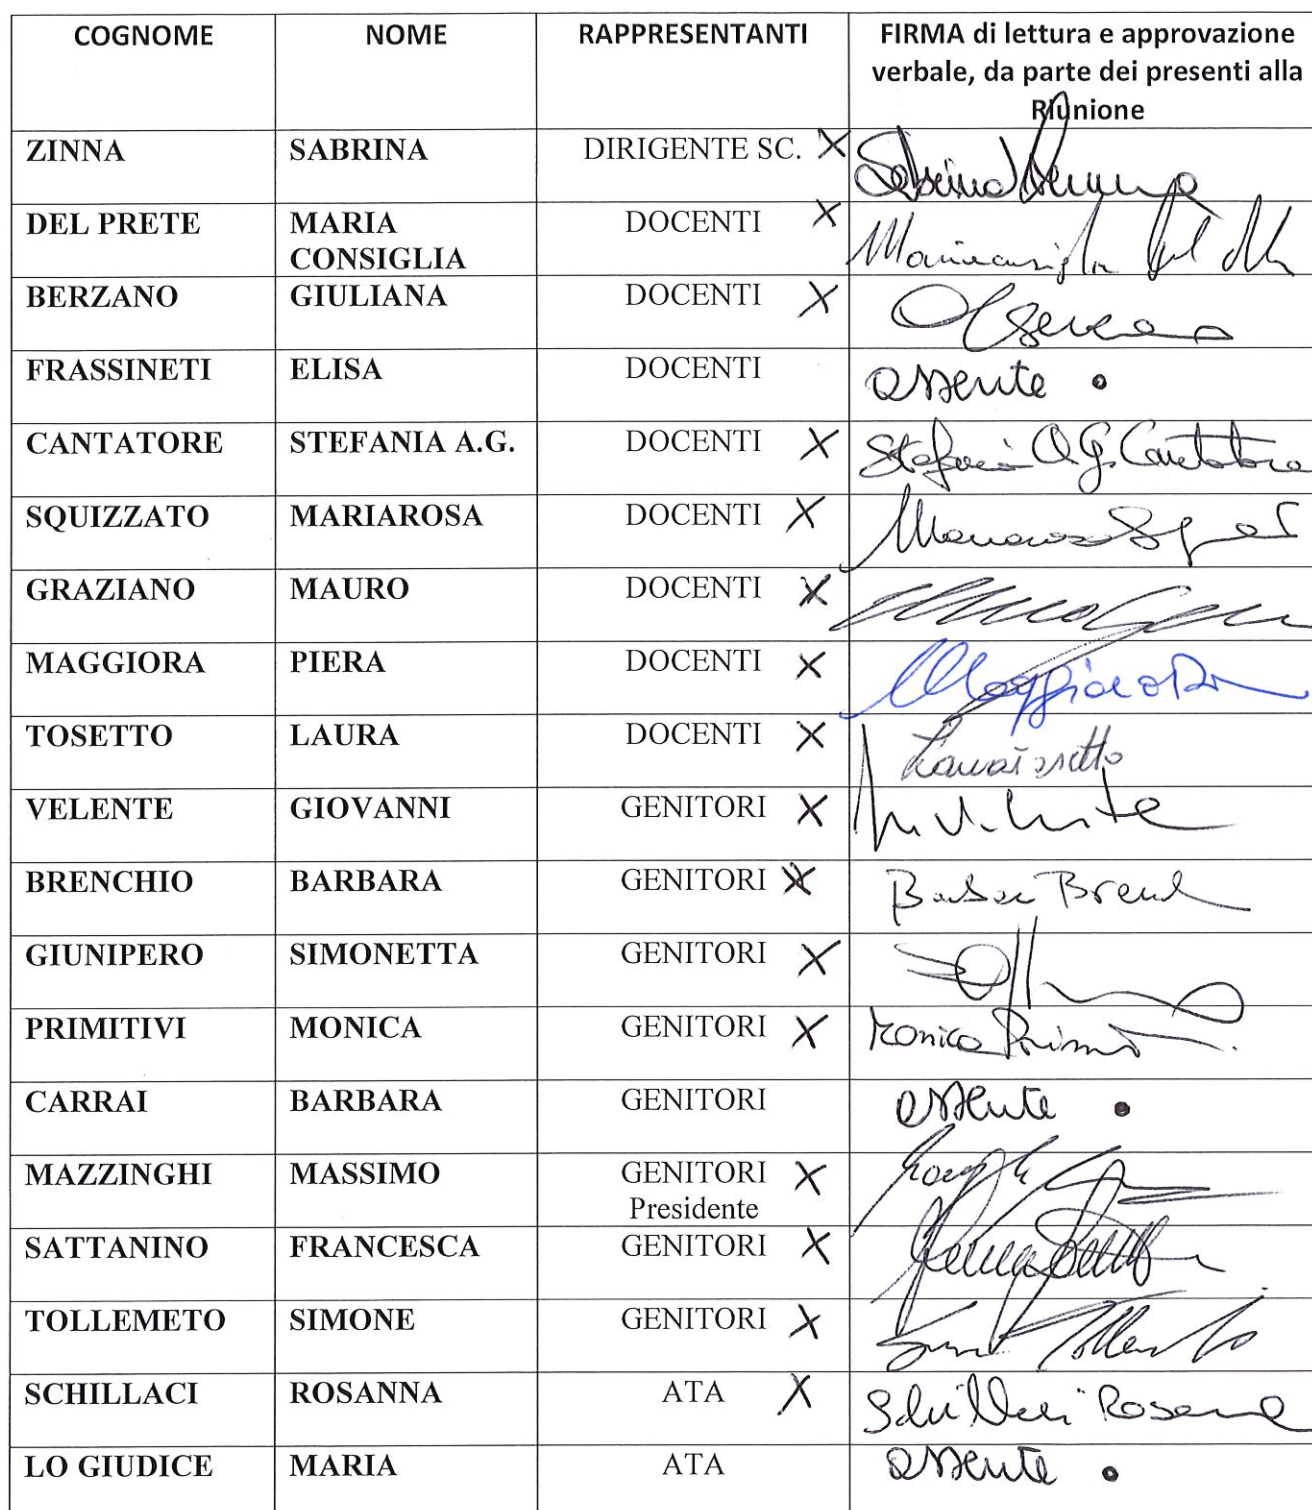 COGNOME NOME RAPPRESENTANTI FIRMA di lettura e approvazione
verbale, da parte dei presenti alla
Riunione
ZINNA SABRINA DIRIGENTE SC. X Sabrina Zinna
DEL PRETE MARIA DOCENTI X Mariaconsiglia Del
CONSIGLIA
BERZANO GIULIANA DOCENTI X
FRASSINETI ELISA DOCENTI assente
CANTATORE STEFANIA A.G. DOCENTI X Stefania A.G. Cantatore
SQUIZZATO MARIAROSA DOCENTI X Mariarosa
GRAZIANO MAURO DOCENTI X
MAGGIORA PIERA DOCENTI X Maggiora
TOSETTO LAURA DOCENTI X Laura Tosetto
VELENTE GIOVANNI GENITORI X
BRENCHIO BARBARA GENITORI X
GIUNIPERO SIMONETTA GENITORI X
PRIMITIVI MONICA GENITORI X Monica
CARRAI BARBARA GENITORI assente
MAZZINGHI MASSIMO GENITORI X
Presidente
SATTANINO FRANCESCA GENITORI X
TOLLEMETO SIMONE GENITORI X
SCHILLACI ROSANNA ATA X Schillaci Rosanna
LO GIUDICE MARIA ATA assente